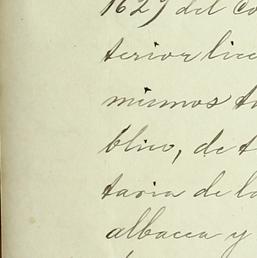 1629 del Có
terior lice
mismos t
blico, de t
taria de la
albacea y